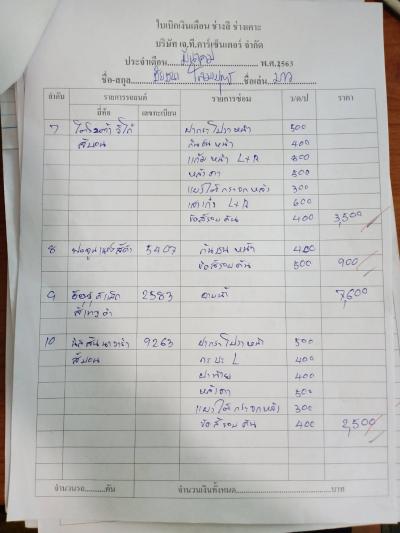 ใบเบิกเงินเดือน ช่างสี ช่างเคาะ
บริษัท เจ.ที.คาร์เซ็นเตอร์ จำกัด
ประจำเดือน มิถุนายน พ.ศ.2563
ชื่อ-สกุล ชื่อเล่น
ลำดับ รายการรถยนต์ รายการซ่อม ว/ด/ป ราคา
สี/ห้อ เลขทะเบียน
7 โตโยต้า วีโก้ ฝากระโปรงหน้า 500
กันชนหน้า 400
แก้มหน้า L+R 800
หลังคา 500
แผงใต้กระจกหลัง 300
เสาเก๋ง L+R 600
ขัดสีรอบคัน 400 3,500
8 5407 กันชนหน้า 400
ขัดสีรอบคัน 500 900
9 2583 7,600
10 นิสสันนาวาร่า 9263 ฝากระโปรงหน้า 500
กระบะ L 400
ฝาท้าย 400
หลังคา 500
แผงใต้กระจกหลัง 300
ขัดสีรอบคัน 400 2,500
จำนวนรถ คัน จำนวนเงินทั้งหมด บาท